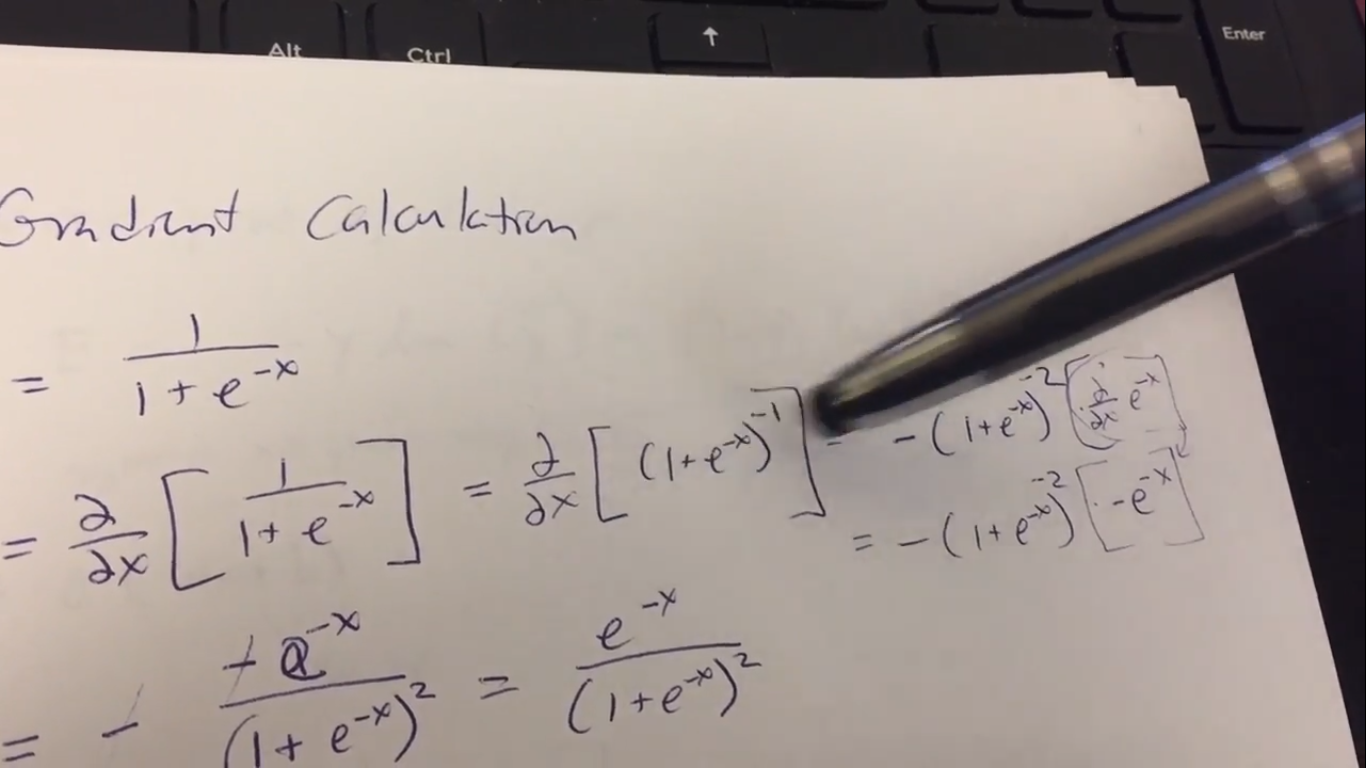 Alt Ctrl ↑ Enter
Gradient Calculation
= 1 / (1 + e^-x)
= ∂/∂x [ 1 / (1 + e^-x) ] = ∂/∂x [ (1+e^-x)^-1 ] = -(1+e^-x)^-2 [ ∂/∂x e^-x ]
= -(1+e^-x)^-2 [ -e^-x ]
= - -e^-x / (1 + e^-x)^2 = e^-x / (1+e^-x)^2